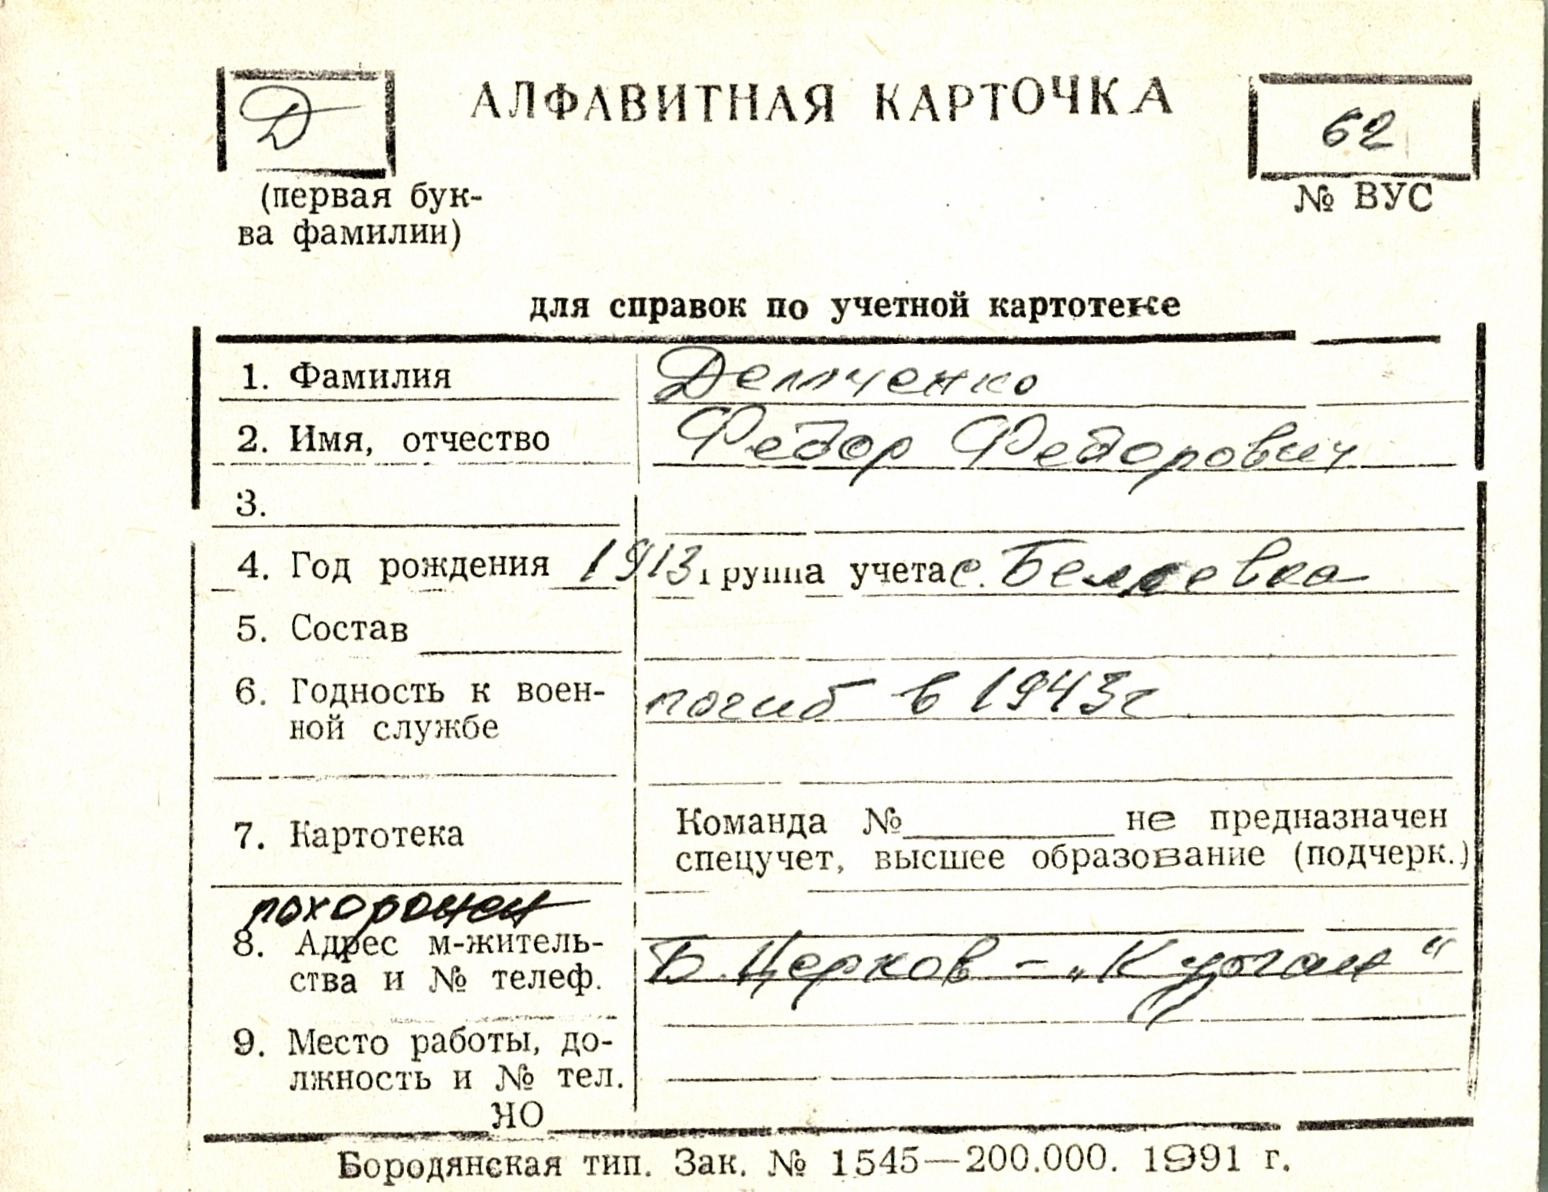 Д
АЛФАВИТНАЯ КАРТОЧКА
62
(первая бук-
ва фамилии)
№ ВУС
для справок по учетной картотеке
1. Фамилия Демченко
2. Имя, отчество Федор Федорович
3.
4. Год рождения 1913 группа учета с.
5. Состав
6. Годность к воен- погиб в 1943г
ной службе
7. Картотека
Команда № не предназначен
спецучет, высшее образование (подчерк.)
похоронен
8. Адрес м-житель-
ства и № телеф. Б. Церков - „Курган“
9. Место работы, до-
лжность и № тел.
НО
Бородянская тип. Зак. № 1545—200.000. 1991 г.